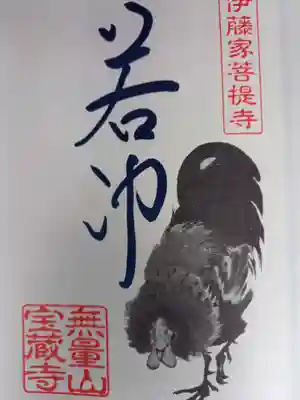 伊藤家菩提寺
若冲
無量山
宝蔵寺